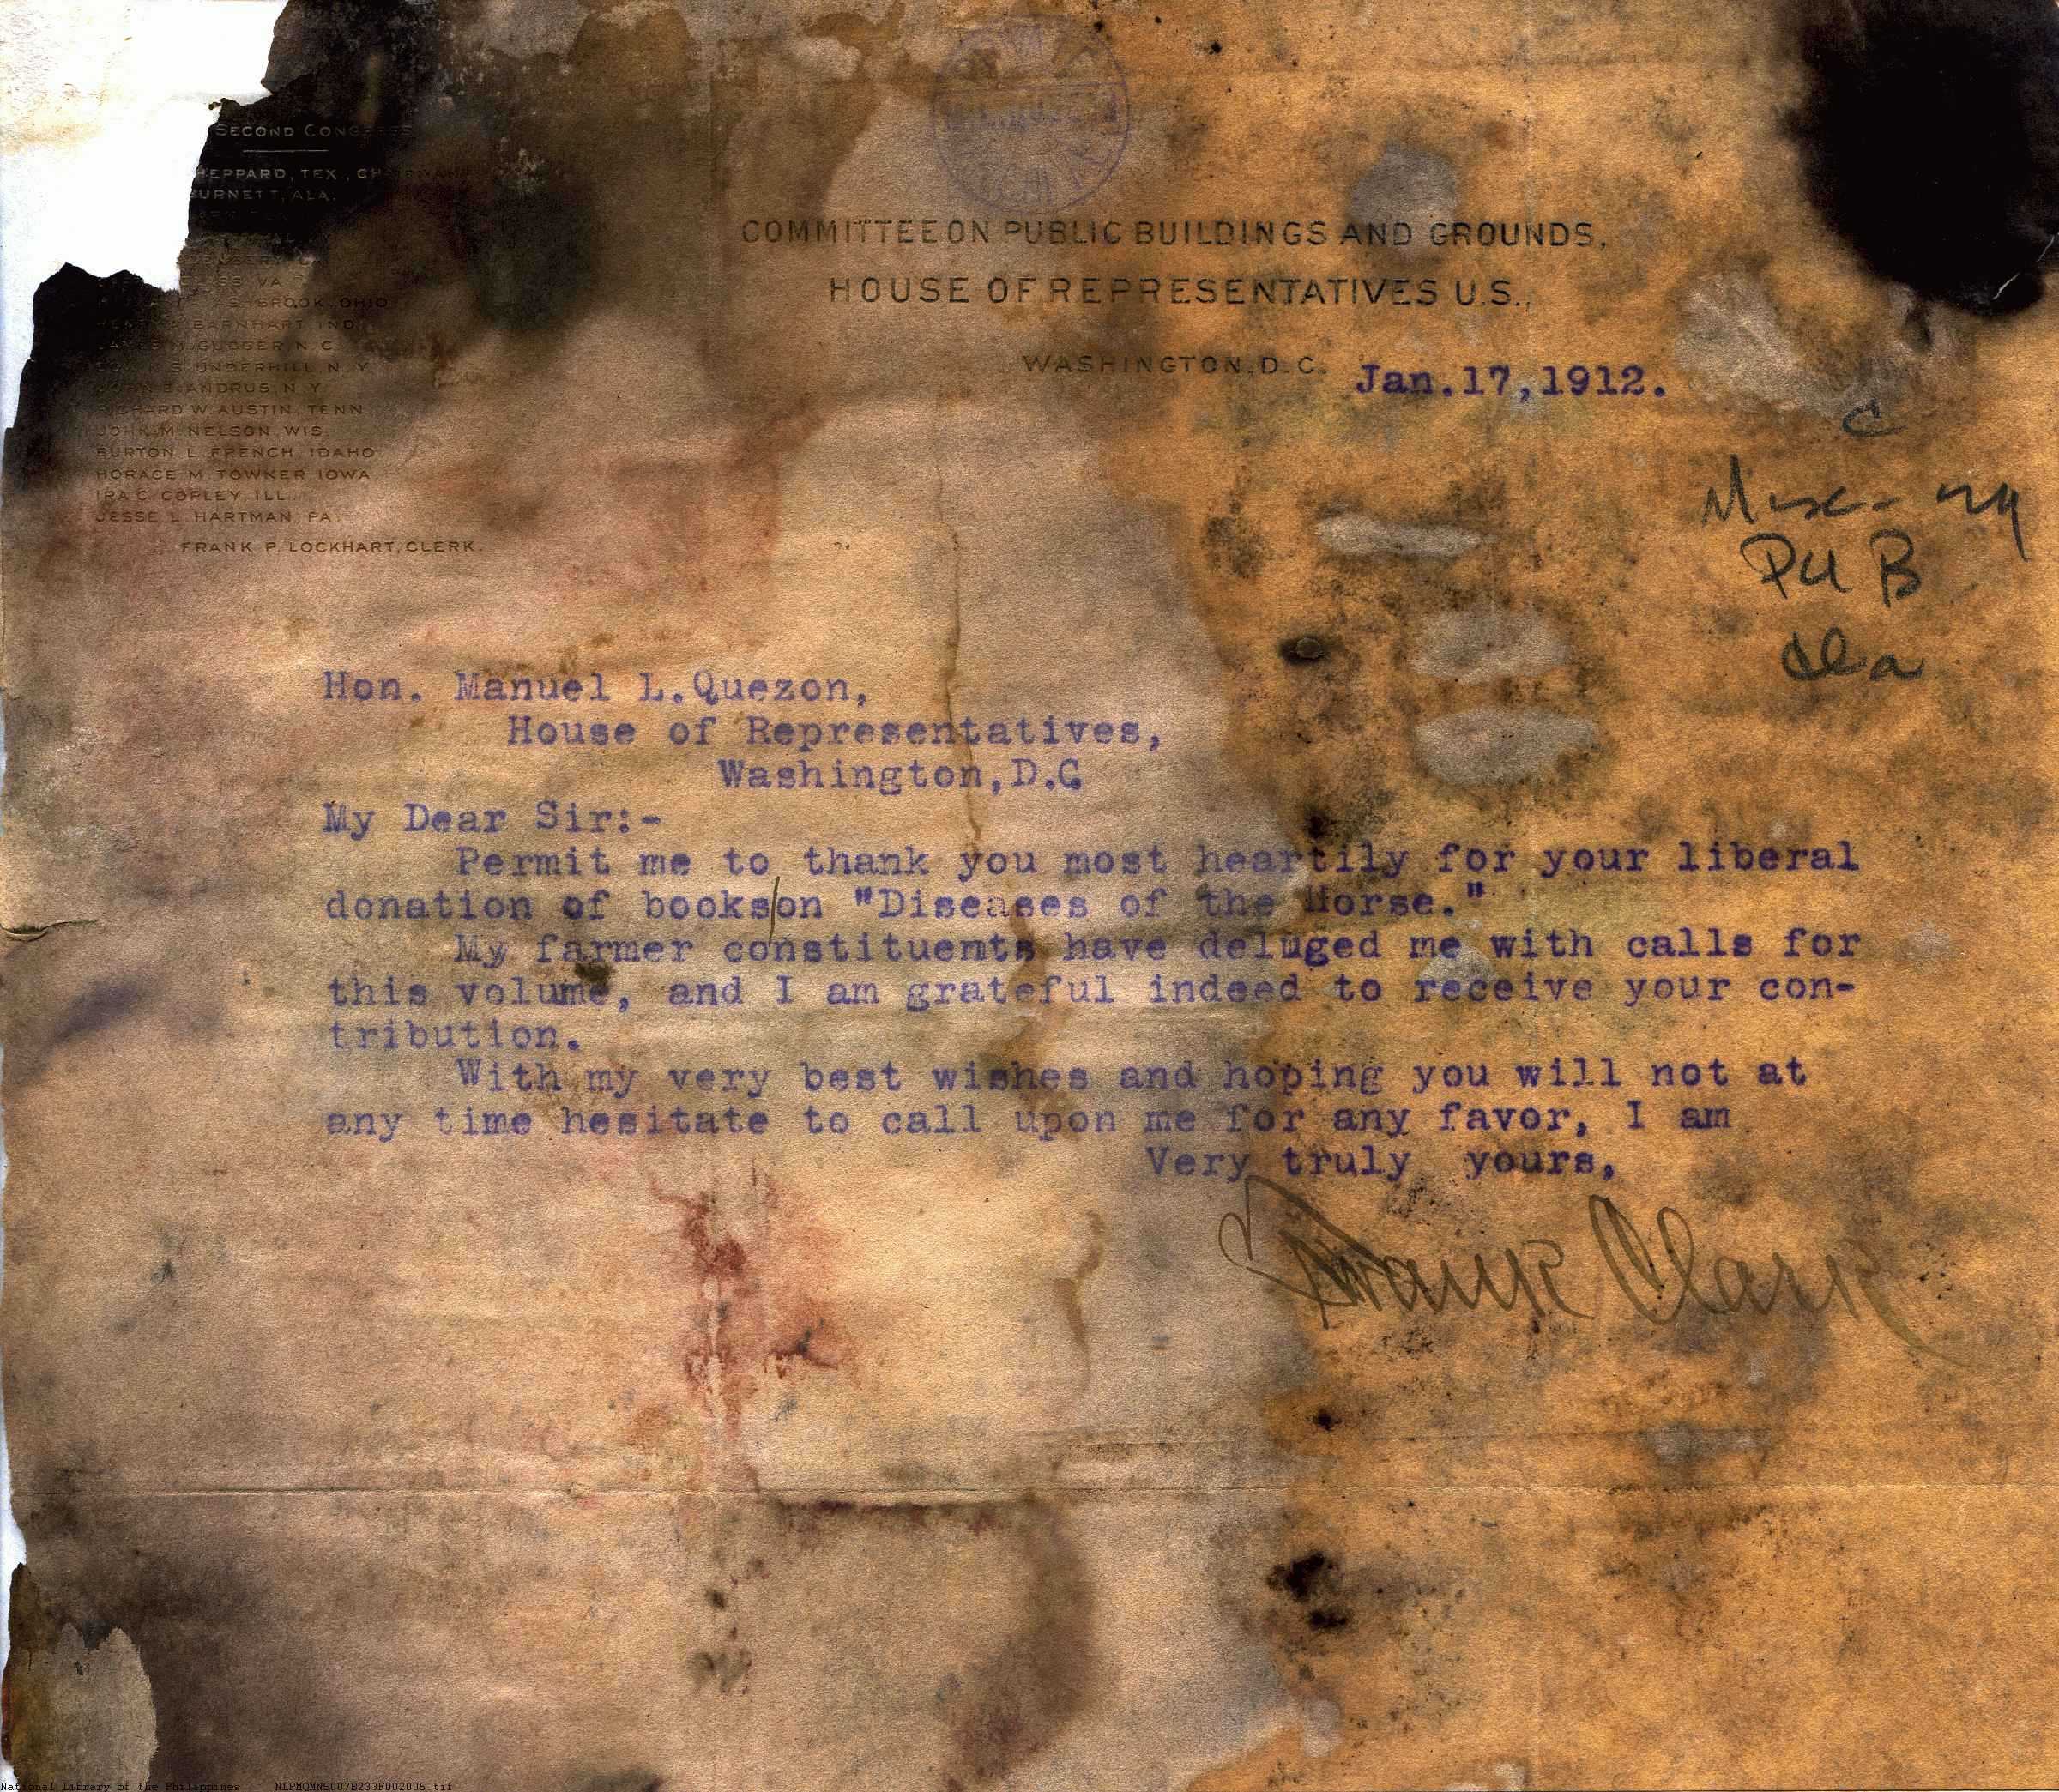 SECOND CONGRESS
HEPPARD, TEX., CHAIRMAN
BURNETT, ALA.
VA
BROOK, OHIO
BARNHART, IND
GUDGER, N. C.
S. UNDERHILL, N. Y.
ANDRUS, N. Y.
RICHARD W. AUSTIN, TENN.
JOHN M. NELSON, WIS.
BURTON L. FRENCH, IDAHO
HORACE M. TOWNER, IOWA
IRA C. COPLEY, ILL.
JESSE L. HARTMAN, PA.
FRANK P. LOCKHART, CLERK.
COMMITTEE ON PUBLIC BUILDINGS AND GROUNDS,
HOUSE OF REPRESENTATIVES U.S.,
WASHINGTON, D. C. Jan.17,1912.
C
Misc-
PU B
Hon. Manuel L.Quezon,
House of Representatives,
Washington,D.C
My Dear Sir:-
Permit me to thank you most heartily for your liberal
donation of books/on "Diseases of the Horse."
My farmer constituemts have deluged me with calls for
this volume, and I am grateful indeed to receive your con-
tribution.
With my very best wishes and hoping you will not at
any time hesitate to call upon me for any favor, I am
Very truly yours,
Frank Clark
National Library of the Philippines NLPMQMNS007B233F002005.tif